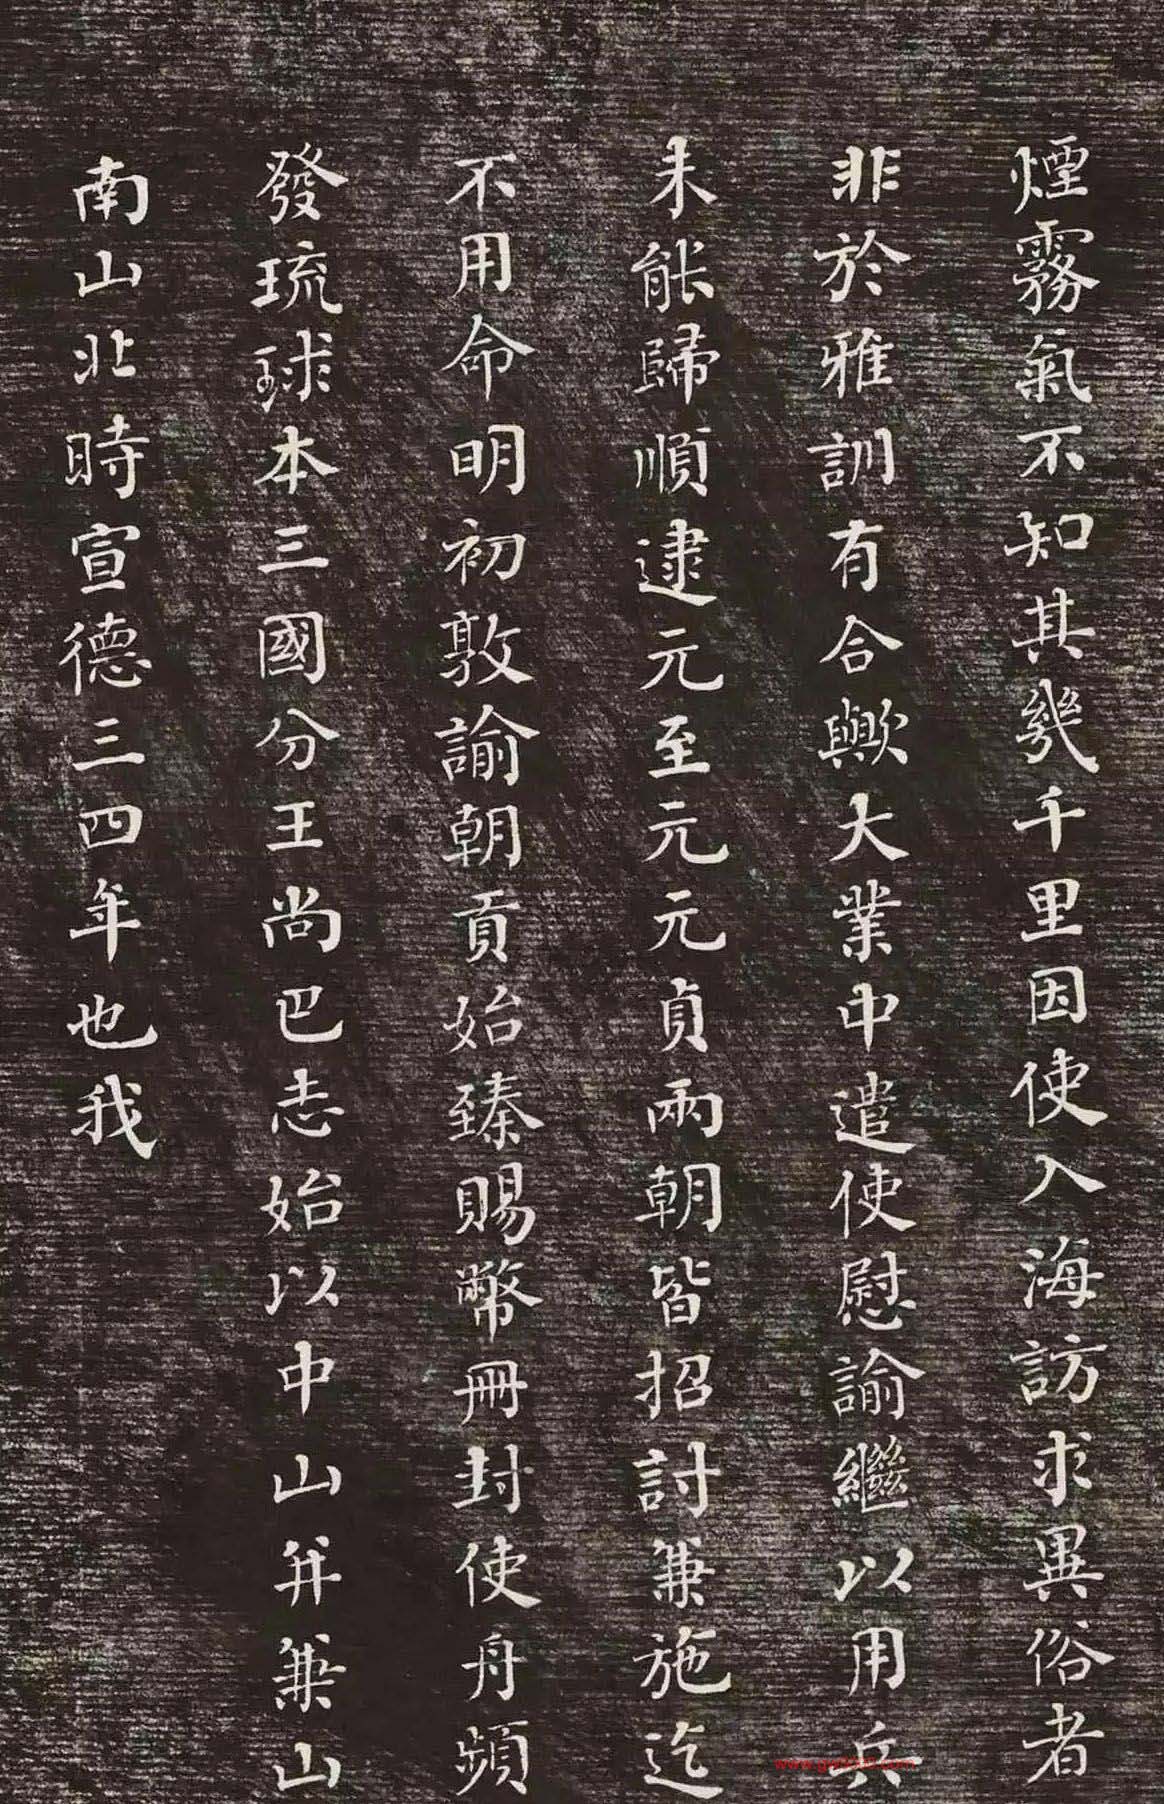 煙霧氣不知其幾千里因使入海訪求異俗者
非於雅訓有合歟大業中遣使慰諭繼以用兵
未能歸順逮元至元元貞兩朝皆招討兼施迄
不用命明初敦諭朝貢始臻賜幣冊封使舟頻
發琉球本三國分王尚巴志始以中山并兼山
南山北時宣德三四年也我